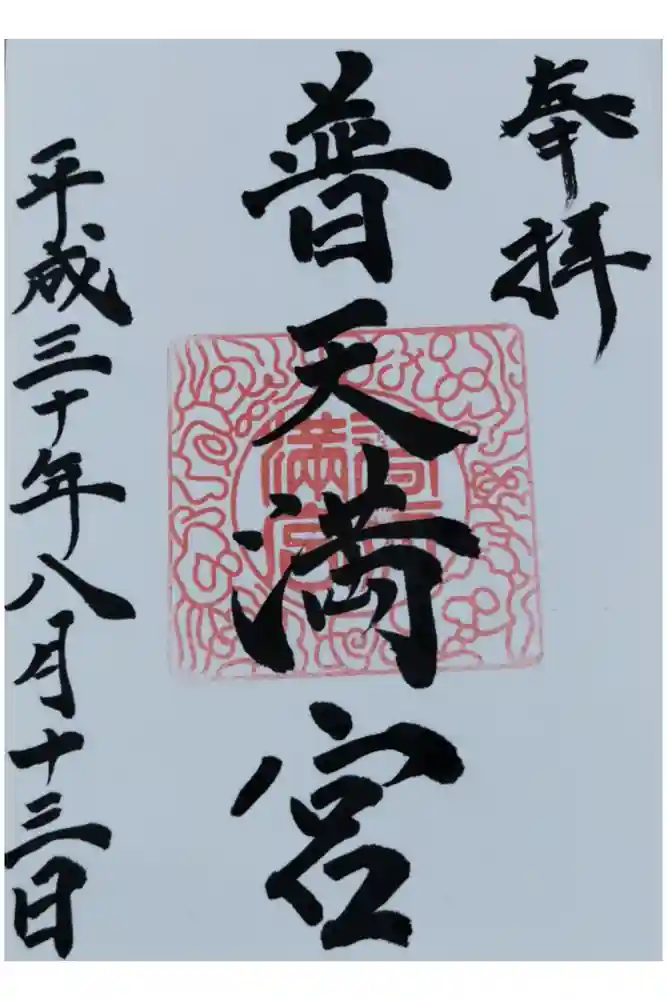 奉拝
普天満宮
平成三十年八月十三日
普天
満宮